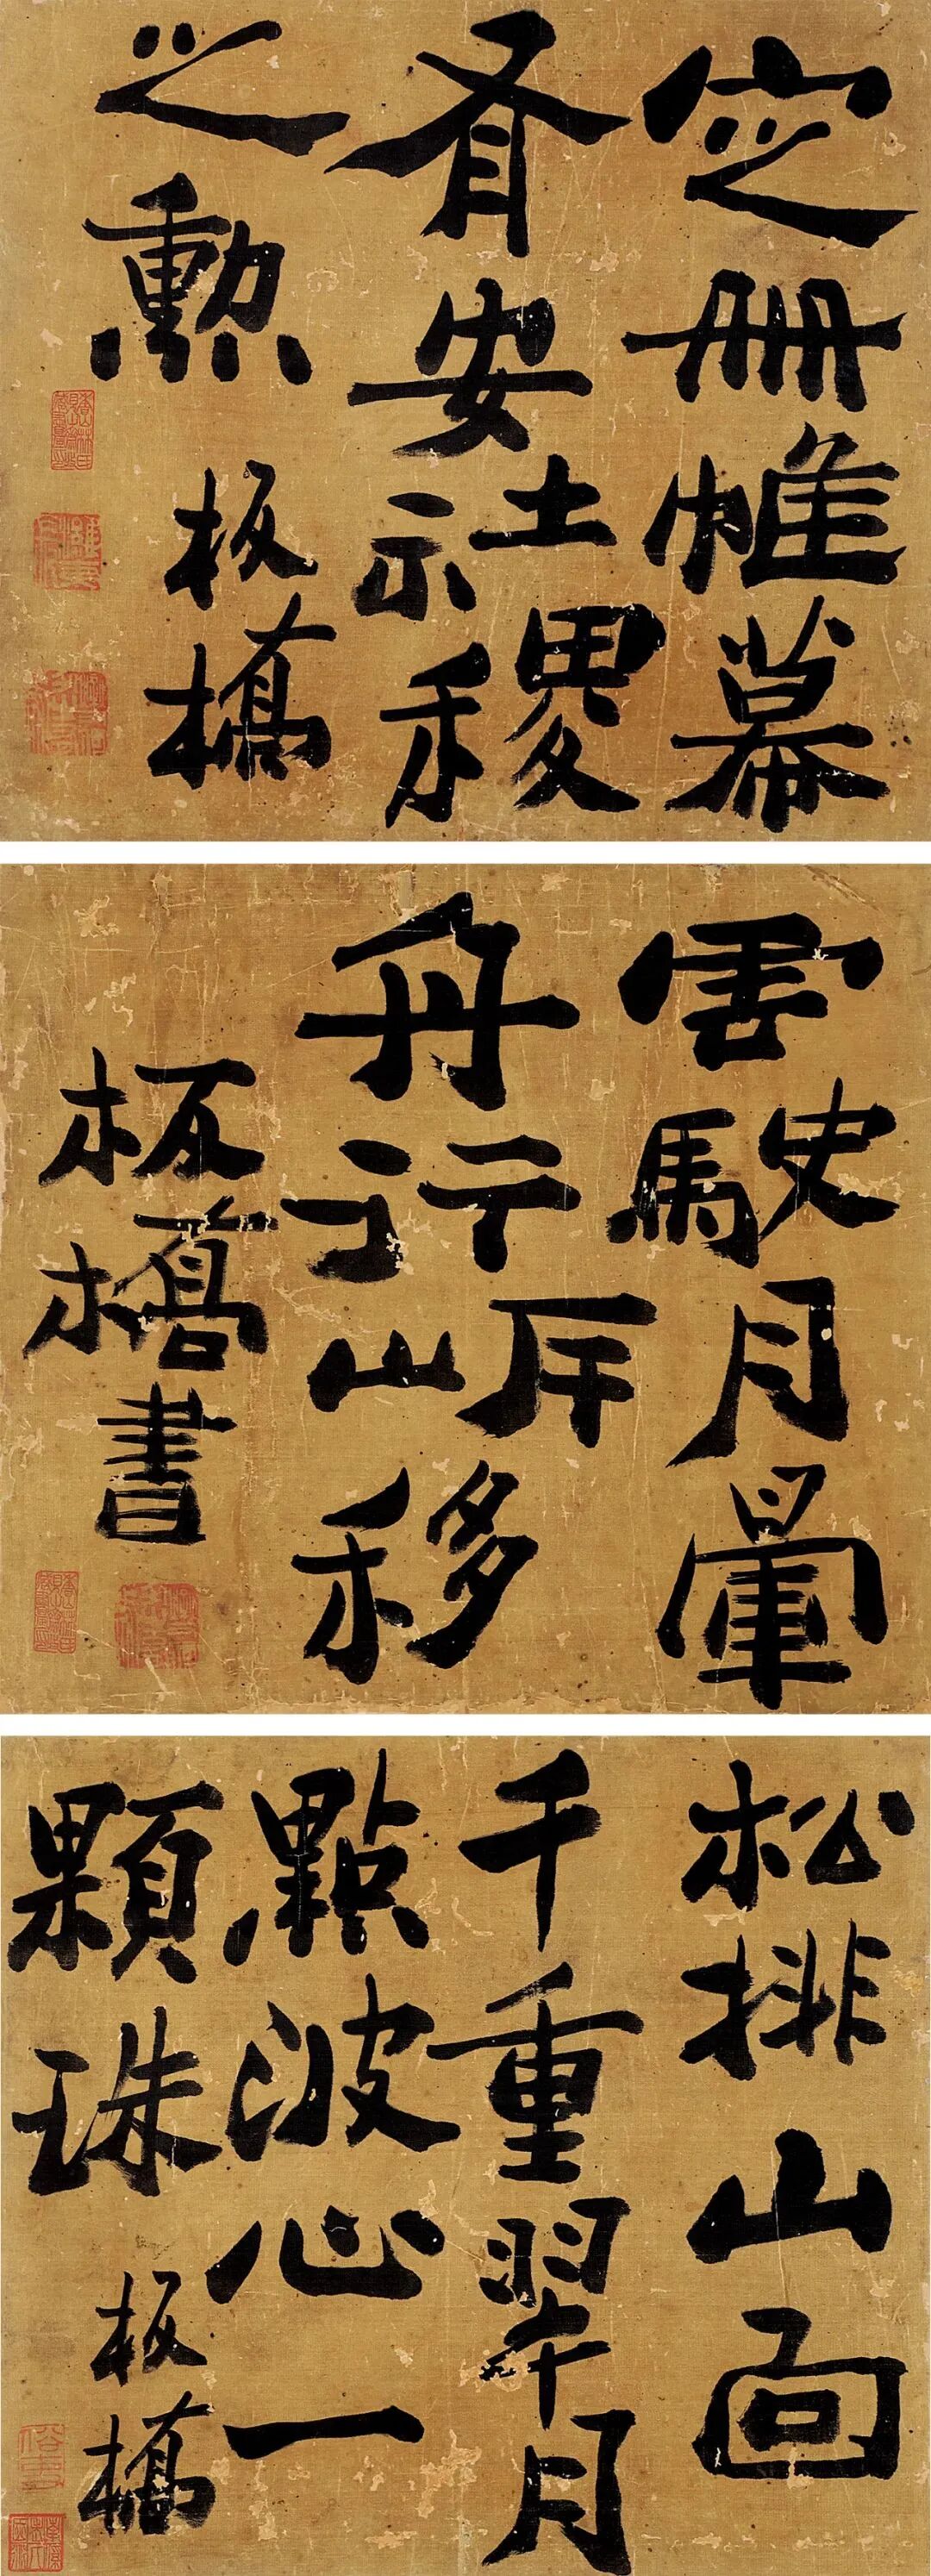 定冊帷幕
有安社稷
之勳 板橋
雲駛月暈
舟行岸移
板橋書
松排山面
千重翠月
點波心一
顆珠 板橋